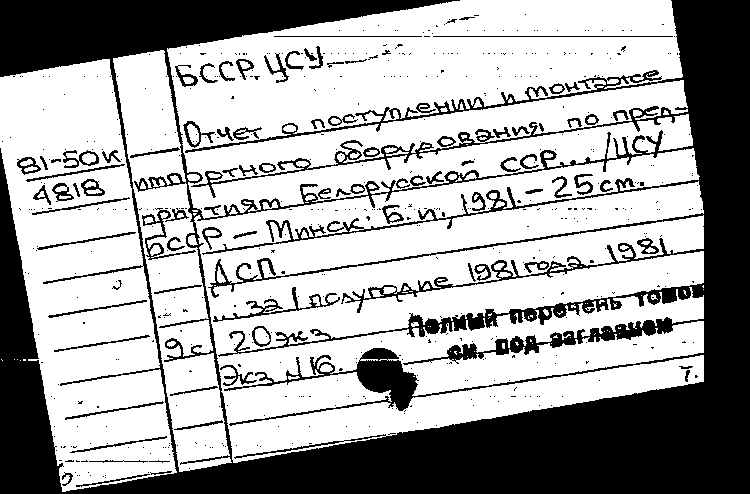 БССР. ЦСУ
Отчет о поступлении и монтаже
81-50К
4818
импортного оборудования по пред-
приятиям Белорусской ССР... /ЦСУ
БССР. - Минск: Б.и., 1981. - 25 см.
ДСП.
...за I полугодие 1981 года. 1981.
9 с 20 экз
Экз №16.
Полный перечень томов
см. под заглавием
7.